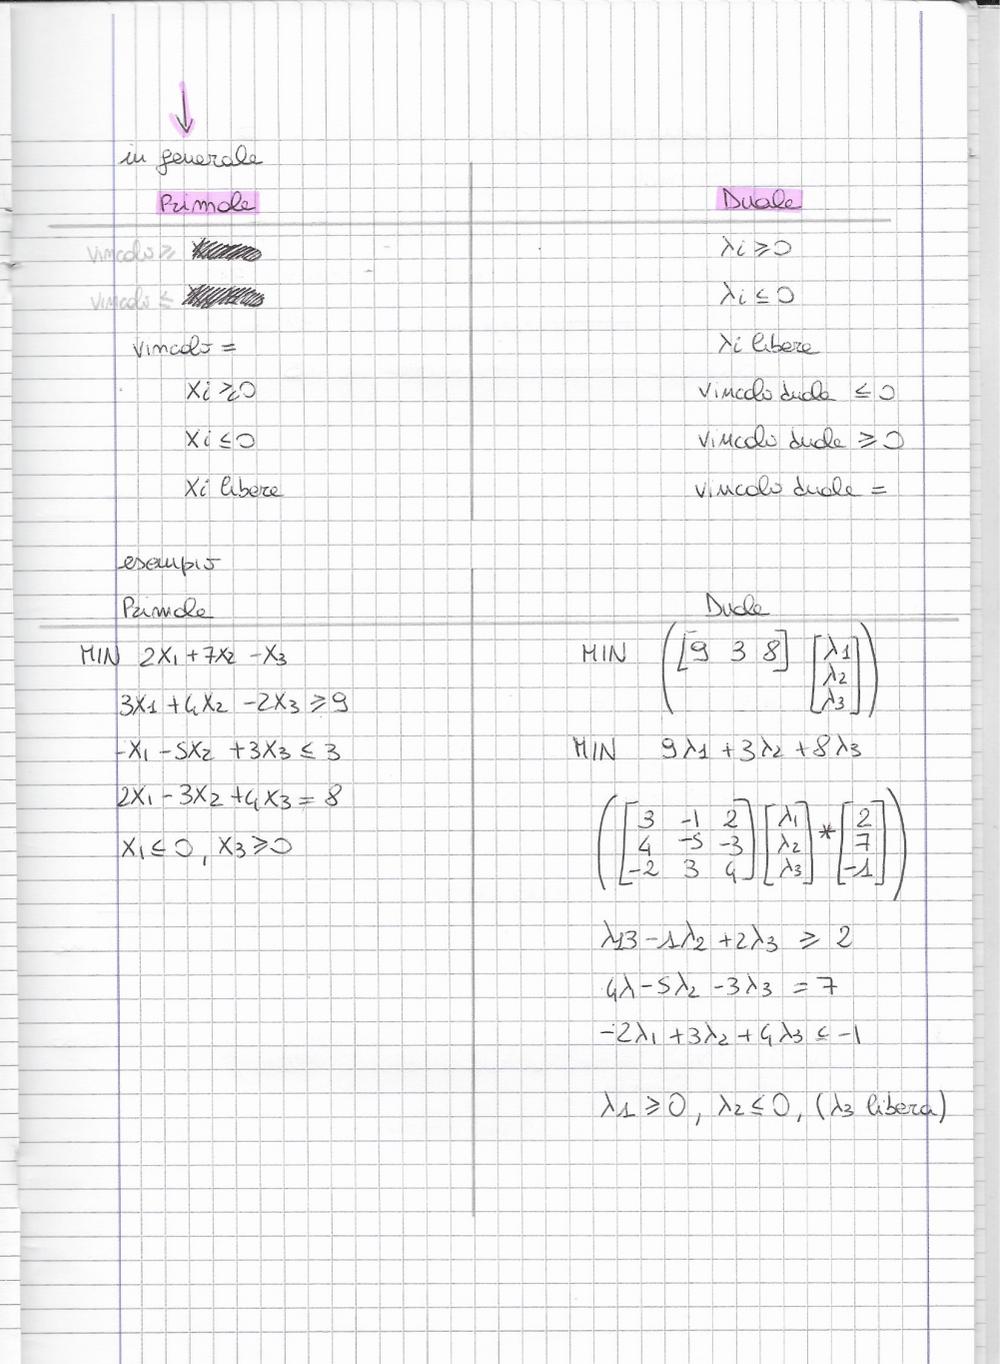 in generale
Primale Duale
vincolo ≥ λi ≥ 0
vincolo ≤ λi ≤ 0
vincolo = λi libere
Xi ≥ 0 vincolo duale ≤ 0
Xi ≤ 0 vincolo duale ≥ 0
Xi libere vincolo duale =
esempio
Primale Duale
MIN 2X1 + 7X2 - X3
3X1 + 4X2 - 2X3 ≥ 9
-X1 - 5X2 + 3X3 ≤ 3
2X1 - 3X2 + 4X3 = 8
X1 ≤ 0, X3 ≥ 0
MIN ([9 3 8] [λ1
λ2
λ3])
MIN 9λ1 + 3λ2 + 8λ3
([3 -1 2] [λ1] * [2]
[4 -5 -3] [λ2] [7]
[-2 3 4] [λ3] [-1])
λ13 - 1λ2 + 2λ3 ≥ 2
4λ - 5λ2 - 3λ3 = 7
-2λ1 + 3λ2 + 4λ3 ≤ -1
λ1 ≥ 0, λ2 ≤ 0, (λ3 libera)